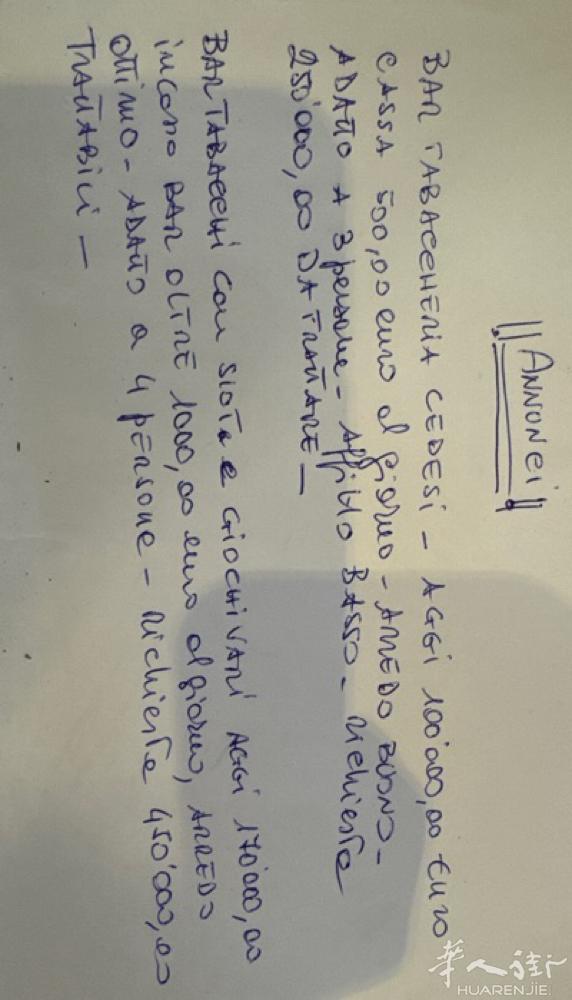 !! ANNONCI !!
BAR TABACCHERIA CEDESI - AGGI 100'000,00 EURO
CASSA 500,00 euro al giorno - ARREDO BUONO -
ADATTO A 3 persone - Affitto BASSO - Richiesta
250'000,00 DA TRATTARE -
BAR TABACCHI con SLOT e GIOCHI VARI AGGI 170'000,00
incasso BAR OLTRE 1000,00 euro al giorno, ARREDO
OTTIMO - ADATTO a 4 PERSONE - Richiesta 450'000,00
TRATTABILI -
华人街
HUARENJIE.